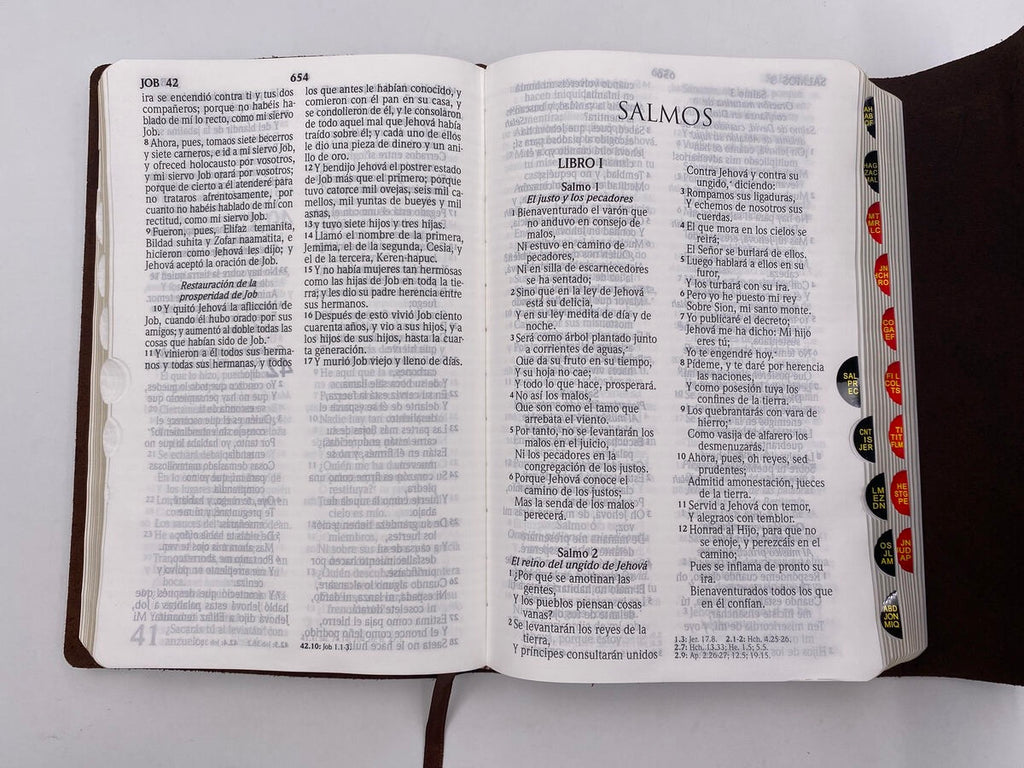 JOB 42
654
ira se encendió contra ti y tus dos
compañeros; porque no habéis ha-
blado de mí lo recto, como mi siervo
Job.
8 Ahora, pues, tomaos siete becerros
y siete carneros, e id a mi siervo Job,
y ofreced holocausto por vosotros,
y mi siervo Job orará por vosotros;
porque de cierto a él atenderé para
no trataros afrentosamente, por
cuanto no habéis hablado de mí con
rectitud, como mi siervo Job.
9 Fueron, pues, Elifaz temanita,
Bildad suhita y Zofar naamatita, e
hicieron como Jehová les dijo; y
Jehová aceptó la oración de Job.
Restauración de la
prosperidad de Job
10 Y quitó Jehová la aflicción de
Job, cuando él hubo orado por sus
amigos; y aumentó al doble todas las
cosas que habían sido de Job.*
11 Y vinieron a él todos sus herma-
nos y todas sus hermanas, y todos
los que antes le habían conocido, y
comieron con él pan en su casa, y
se condolieron de él, y le consolaron
de todo aquel mal que Jehová había
traído sobre él; y cada uno de ellos
le dió una pieza de dinero y un ani-
llo de oro.
12 Y bendijo Jehová el postrer estado
de Job más que el primero; porque
tuvo catorce mil ovejas, seis mil ca-
mellos, mil yuntas de bueyes y mil
asnas,
13 y tuvo siete hijos y tres hijas.
14 Llamó el nombre de la primera,
Jemima, el de la segunda, Cesia, y
el de la tercera, Keren-hapuc.
15 Y no había mujeres tan hermosas
como las hijas de Job en toda la tie-
rra; y les dio su padre herencia entre
sus hermanos.
16 Después de esto vivió Job ciento
cuarenta años, y vio a sus hijos, y a
los hijos de sus hijos, hasta la cuar-
ta generación.
17 Y murió Job viejo y lleno de días.
42.10: Job 1.1-3.
SALMOS
LIBRO I
Salmo 1
El justo y los pecadores
1 Bienaventurado el varón que
no anduvo en consejo de
malos,
Ni estuvo en camino de
pecadores,
Ni en silla de escarnecedores
se ha sentado;
2 Sino que en la ley de Jehová
está su delicia,
Y en su ley medita de día y de
noche.
3 Será como árbol plantado junto
a corrientes de aguas,*
Que da su fruto en su tiempo,
Y su hoja no cae;
Y todo lo que hace, prosperará.
4 No así los malos,
Que son como el tamo que
arrebata el viento.
5 Por tanto, no se levantarán los
malos en el juicio,
Ni los pecadores en la
congregación de los justos.
6 Porque Jehová conoce el
camino de los justos;
Mas la senda de los malos
perecerá.
Salmo 2
El reino del ungido de Jehová
1 ¿Por qué se amotinan las
gentes,
Y los pueblos piensan cosas
vanas?
2 Se levantarán los reyes de la
tierra,
Y príncipes consultarán unidos
Contra Jehová y contra su
ungido,* diciendo:
3 Rompamos sus ligaduras,
Y echemos de nosotros sus
cuerdas.
4 El que mora en los cielos se
reirá;
El Señor se burlará de ellos.
5 Luego hablará a ellos en su
furor,
Y los turbará con su ira.
6 Pero yo he puesto mi rey
Sobre Sion, mi santo monte.
7 Yo publicaré el decreto;
Jehová me ha dicho: Mi hijo
eres tú;
Yo te engendré hoy.*
8 Pídeme, y te daré por herencia
las naciones,
Y como posesión tuya los
confines de la tierra.
9 Los quebrantarás con vara de
hierro;*
Como vasija de alfarero los
desmenuzarás.
10 Ahora, pues, oh reyes, sed
prudentes;
Admitid amonestación, jueces
de la tierra.
11 Servid a Jehová con temor,
Y alegraos con temblor.
12 Honrad al Hijo, para que no
se enoje, y perezcáis en el
camino;
Pues se inflama de pronto su
ira.
Bienaventurados todos los que
en él confían.
1.3: Jer. 17.8. 2.1-2: Hch. 4.25-26.
2.7: Hch. 13.33; He. 1.5; 5.5.
2.9: Ap. 2.26-27; 12.5; 19.15.
HAG
ZAC
MAL
MT
MR
LC
JN
HCH
RO
CO
GA
EF
SAL
PR
EC
FIL
COL
TS
CNT
IS
JER
TI
TIT
FLM
LM
EZ
DN
HE
STG
PE
OS
JL
AM
JN
JUD
AP
ABD
JON
MIQ